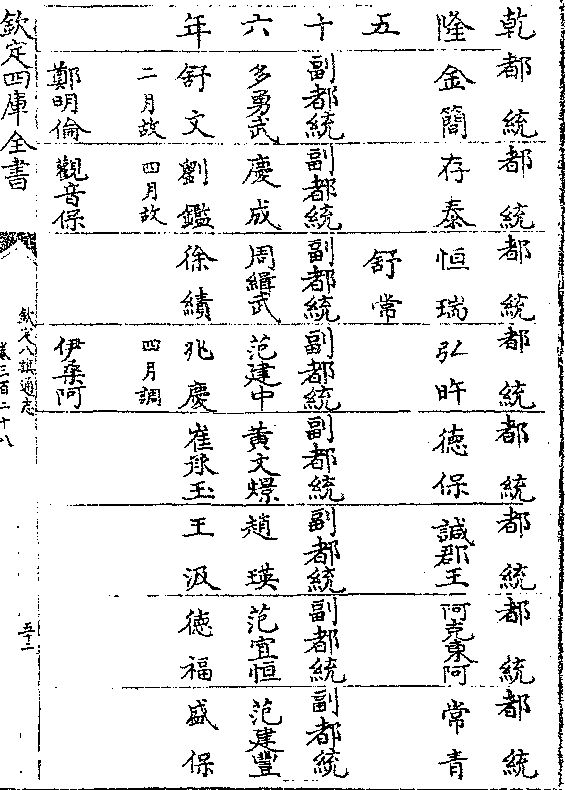 乾 都統 都統 都統 都統 都統 都統 都統 都統
隆 金簡 存泰 恒瑞 弘旿 德保 諴郡王 阿克東阿 常青
五 舒常
十 副都統 副都統 副都統 副都統 副都統 副都統 副都統 副都統
六 多勇武 慶成 周緝武 范建中 黄文煜 趙瑛 范宜恒 范建豐
年 舒文 劉鑑 徐績 兆慶 崔承玉 王汲 德福 盛保
二月故 四月故 四月調
鄭明倫 觀音保 伊桑阿
欽定四庫全書
欽定八旗通志
卷三百二十八